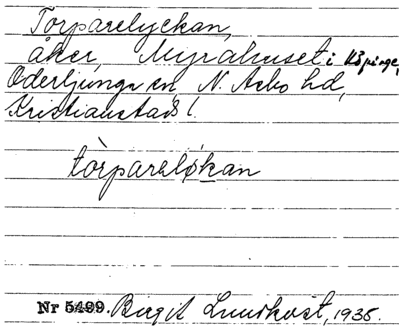 Torparelyckan,
åker, Myrahuset i Köpinge,
Oderljunga sn N. Åsbo hd,
Kristianstads l.
tòrparelykan
Nr 5499. Birgit Lundkvist, 1935.